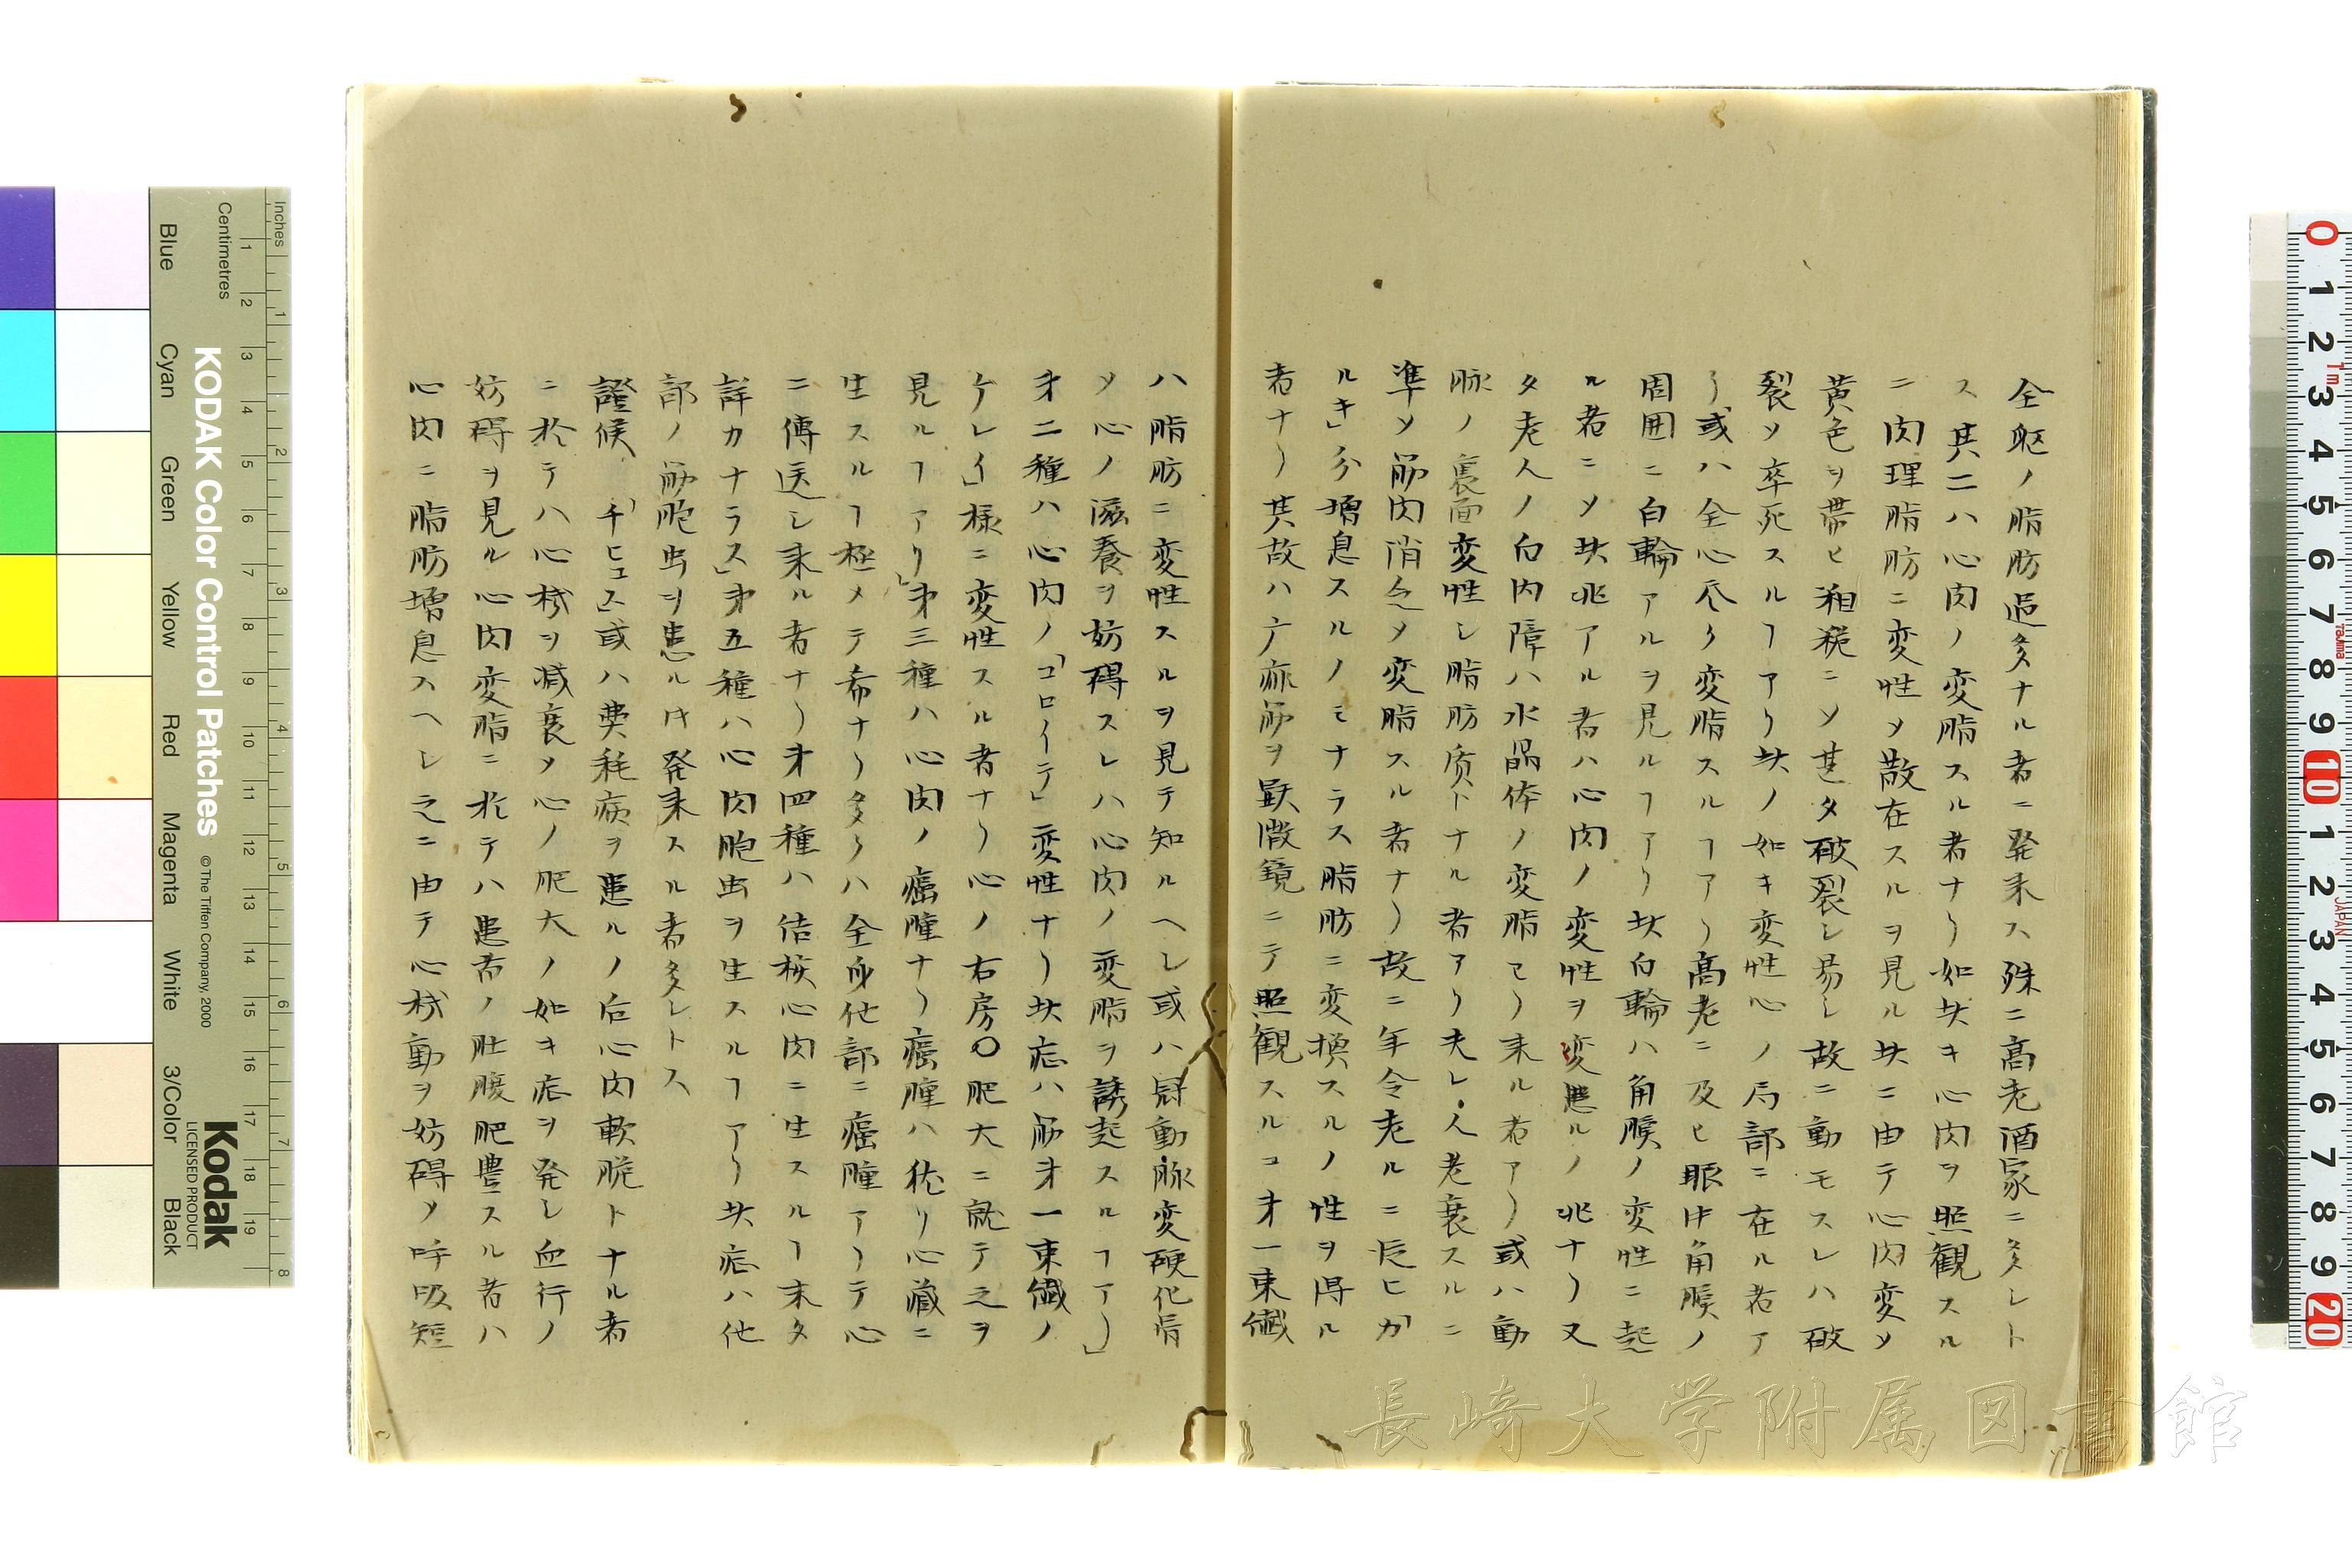 全躯ノ脂肪過多ナル者ニ発来ス殊ニ高老酒家ニ多シト
ス其二ハ心肉ノ変脂スル者ナリ如此キ心肉ヲ照観スル
ニ肉理脂肪ニ変性メ散在スルヲ見ル此ニ由テ心肉変ソ
黄色ヲ帯ヒ粗糙ニソ甚タ破裂シ易シ故ニ動モスレハ破
裂ソ卒死スルヿアリ此ノ如キ変性心ノ局部ニ在ル者ア
リ或ハ全心尽ク変脂スルヿアリ高老ニ及ヒ眼中角膜ノ
周囲ニ白輪アルヲ見ルヿアリ此白輪ハ角膜ノ変性ニ起
ル者ニソ此兆アル者ハ心肉ノ変性ヲ変患ルノ兆ナリ又
タ老人ノ白内障ハ水晶体ノ変脂ヨリ来ル者アリ或ハ動
脉ノ裏面変性シ脂肪质トナル者アリ夫レ人老衰スルニ
準ソ筋肉消亡メ変脂スル者ナリ故ニ年令老ルニ及ヒ「カ
ルキ」分増息スルノミナラス脂肪ニ変換スルノ性ヲ得ル
者ナリ其故ハ亦筋ヲ顕微鏡ニテ照観スルコ才一束繊
ハ脂肪ニ変性スルヲ見テ知ルヘシ或ハ冠動脉変硬化骨
ソ心ノ滋養ヲ妨碍スレハ心肉ノ変脂ヲ誘起スルヿアリ」
才二種ハ心肉ノ「コロイテ」変性ナリ此症ハ筋才一束繊ノ
ケレイ」様ニ変性スル者ナリ心ノ右房〇肥大ニ就テ之ヲ
見ルヿアリ」第三種ハ心肉ノ癌腫ナリ癌腫ハ独リ心蔵ニ
生スルヿ極メテ希ナリ多クハ全身他部ニ癌腫アリテ心
ニ傳送シ来ル者ナリ才四種ハ結核心肉ニ生スルヿ未タ
詳カナラス」第五種ハ心肉胞虫ヲ生スルヿアリ此症ハ他
部ノ筋胞虫ヲ患ル时発来スル者多シトス
證候 「チヒュス」或ハ費耗病ヲ患ルノ后心肉軟脱トナル者
ニ於テハ心機ヲ減衰メ心ノ肥大ノ如キ症ヲ発シ血行ノ
妨碍ヲ見ル心肉変脂ニ於テハ患者ノ肚腹肥豊スル者ハ
心肉ニ脂肪増息スヘシ之ニ由テ心機動ヲ妨碍ソ呼吸短
KODAK Color Control Patches
©The Tiffen Company, 2000
Kodak
LICENSED PRODUCT
Inches
Centimetres
Blue Cyan Green Yellow Red Magenta White 3/Color Black
長崎大学附属図書館